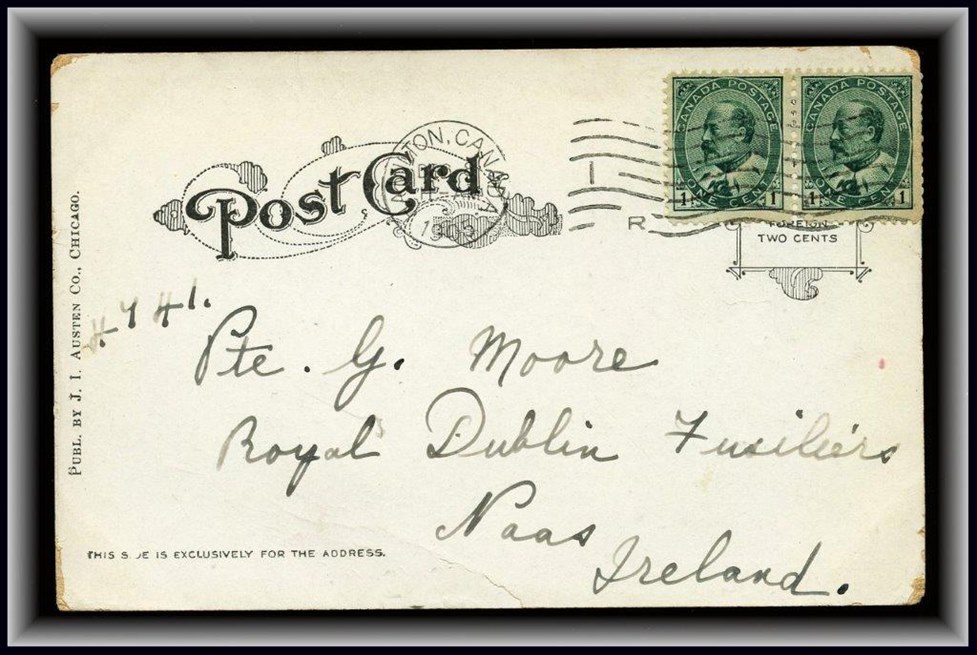 CANADA POSTAGE CANADA POSTAGE
1 ONE CENT 1 1 ONE CENT 1
Post Card
MTON, CANADA
1908
R
FOREIGN
TWO CENTS
PUBL. BY J. I. AUSTEN CO., CHICAGO.
4741.
Pte. G. Moore
Royal Dublin Fusiliers
Naas
Ireland.
THIS S DE IS EXCLUSIVELY FOR THE ADDRESS.